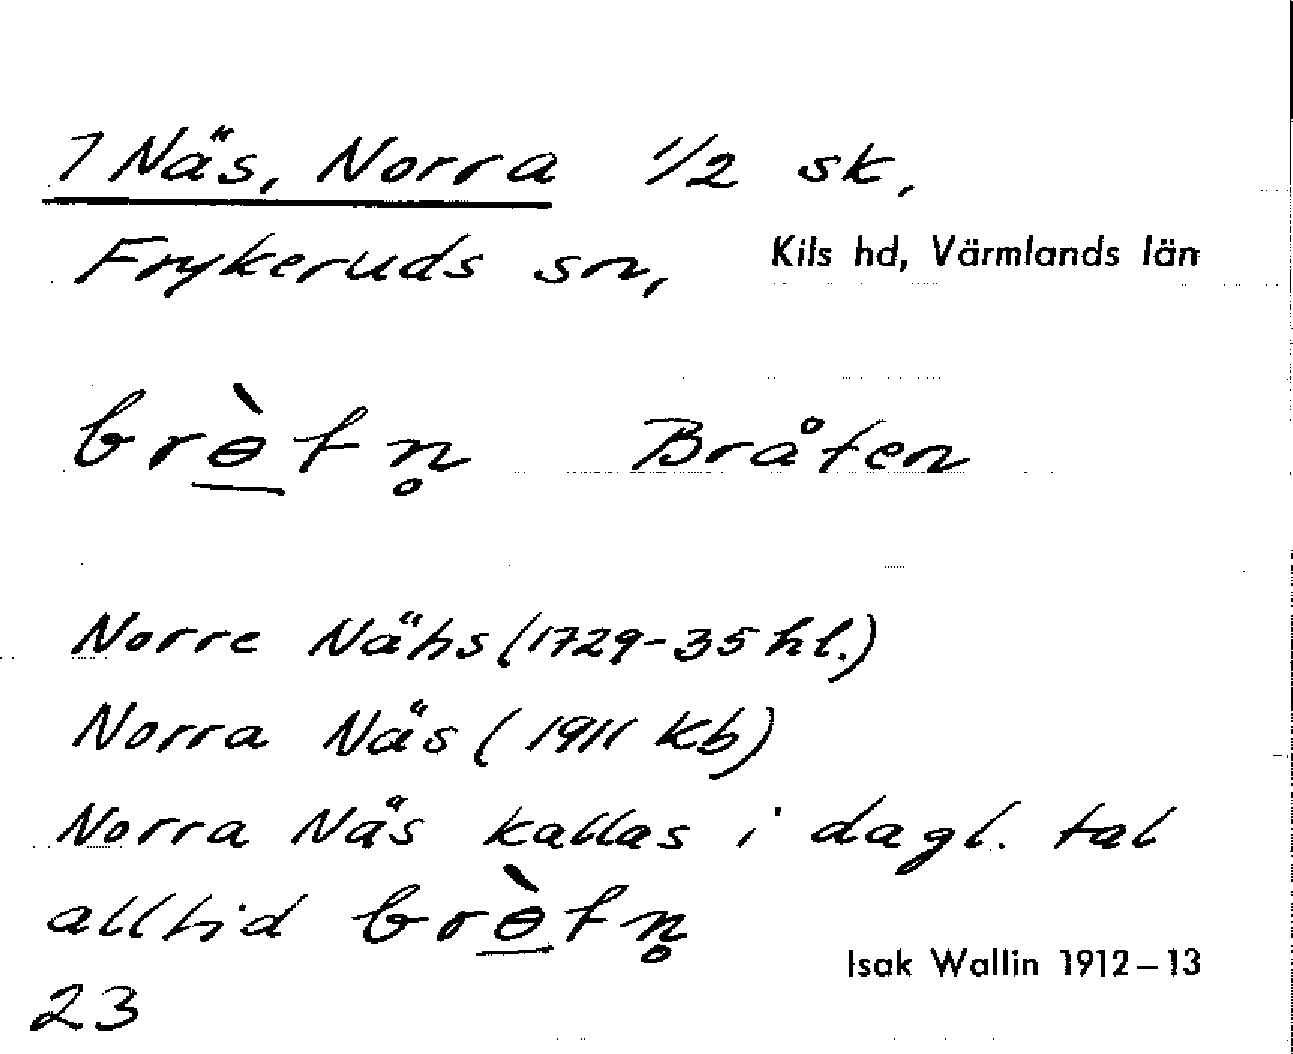 7 Näs, Norra 1/2 sk,
Frykeruds sn, Kils hd, Värmlands län
brɵ̠̀tn̥ Bråten
Norre Nähs (1729-35 hl.)
Norra Näs (1911 Kb)
Norra Näs kallas i dagl. tal
alltid brɵ̠̀tn̥
Isak Wallin 1912–13
23